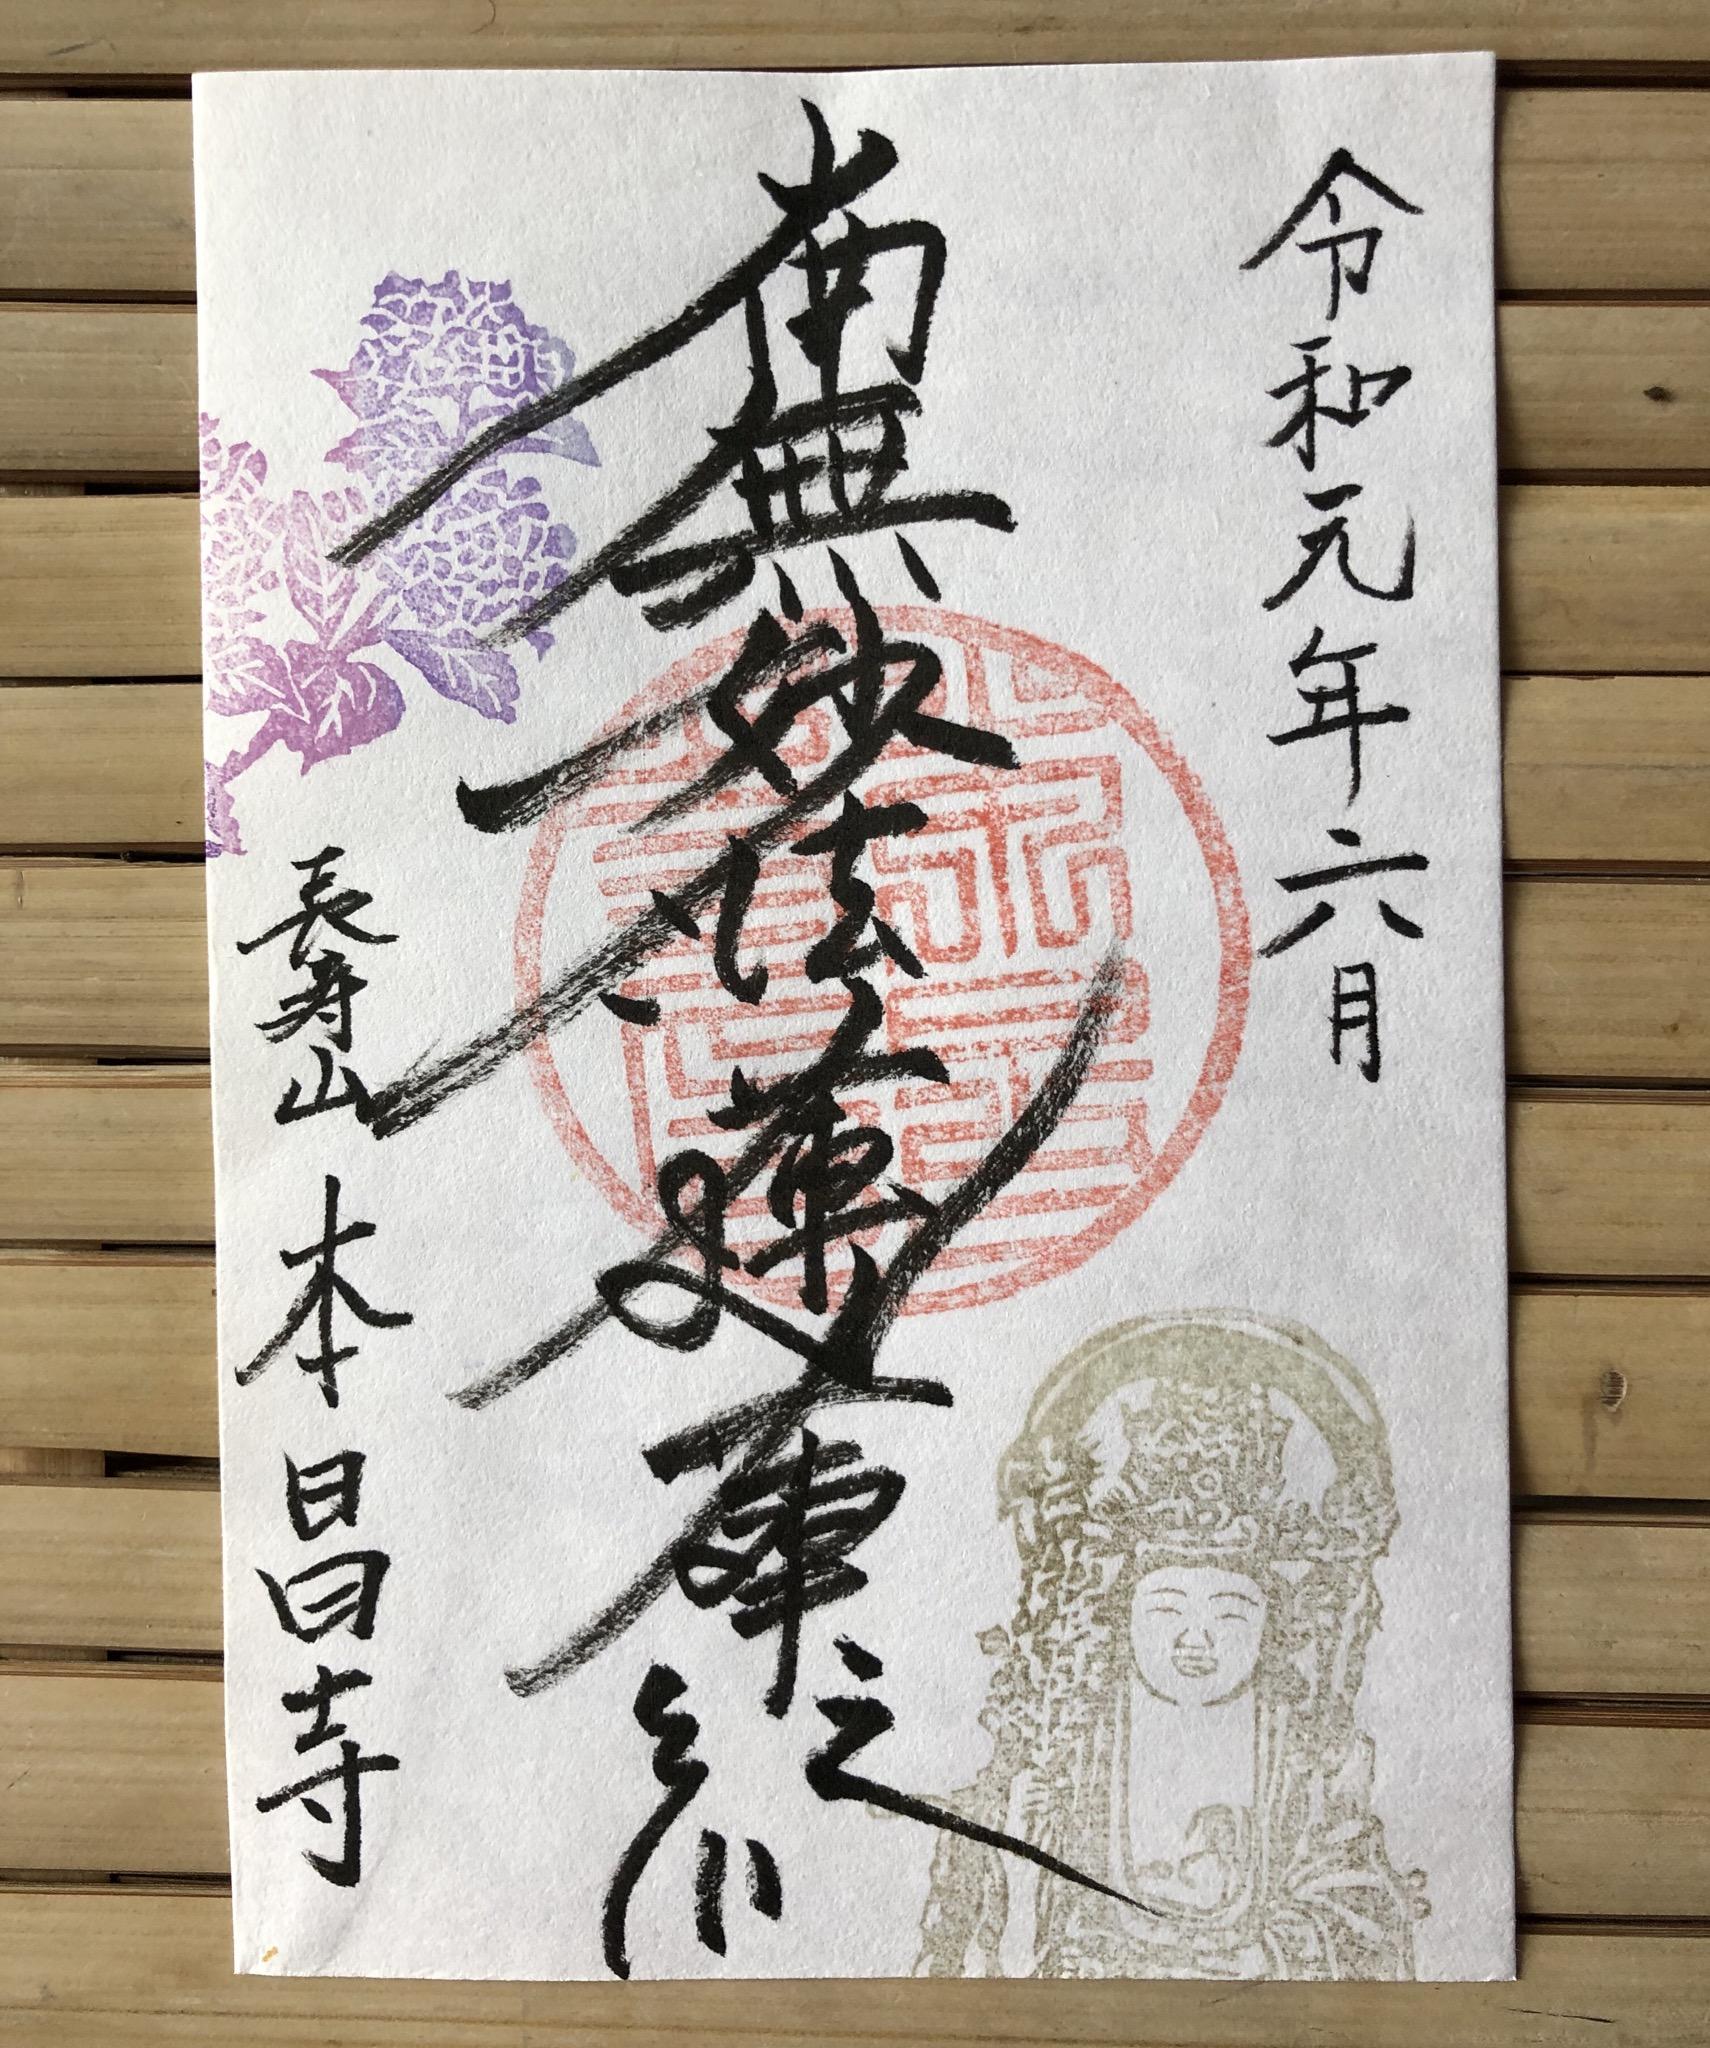 令和元年六月
南無妙法蓮華経
長寿山 本昌寺